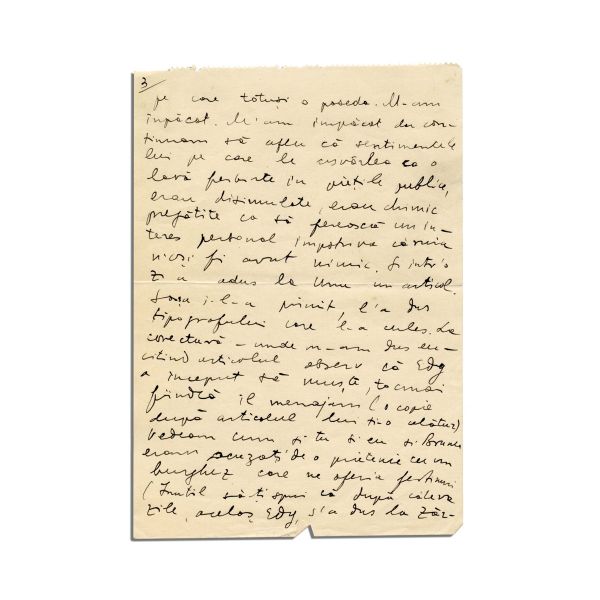 3
pe care totuși o poseda. M-am
împăcat. M'am împăcat dar con-
tinuam să aflu că sentimentele
lui pe care le asvârlea ca o
lavă fierbinte în piețile publice,
erau disimulate, erau chimic
pregătite ca să ferească un in-
teres personal împotriva căruia
nicoși fi avut nimic. Și intr'o
zi a adus la Unu un articol.
Sașa i-l-a primit, l'a dus
tipografului care l-a cules. La
corectură – unde m-am dus eu –
citind articolul observ că Edy
a început să muște, tocmai
fiindcă îl menajam (o copie
după articolul lui ți-o alătur)
Vedeam cum și tu și eu și Brunea
eram acuzați de o prietenie cu un
burghez care ne oferia festinuri
(Inutil să-ți spui că după câteva
zile, acelaș Edy, s'a dus la Zăr-